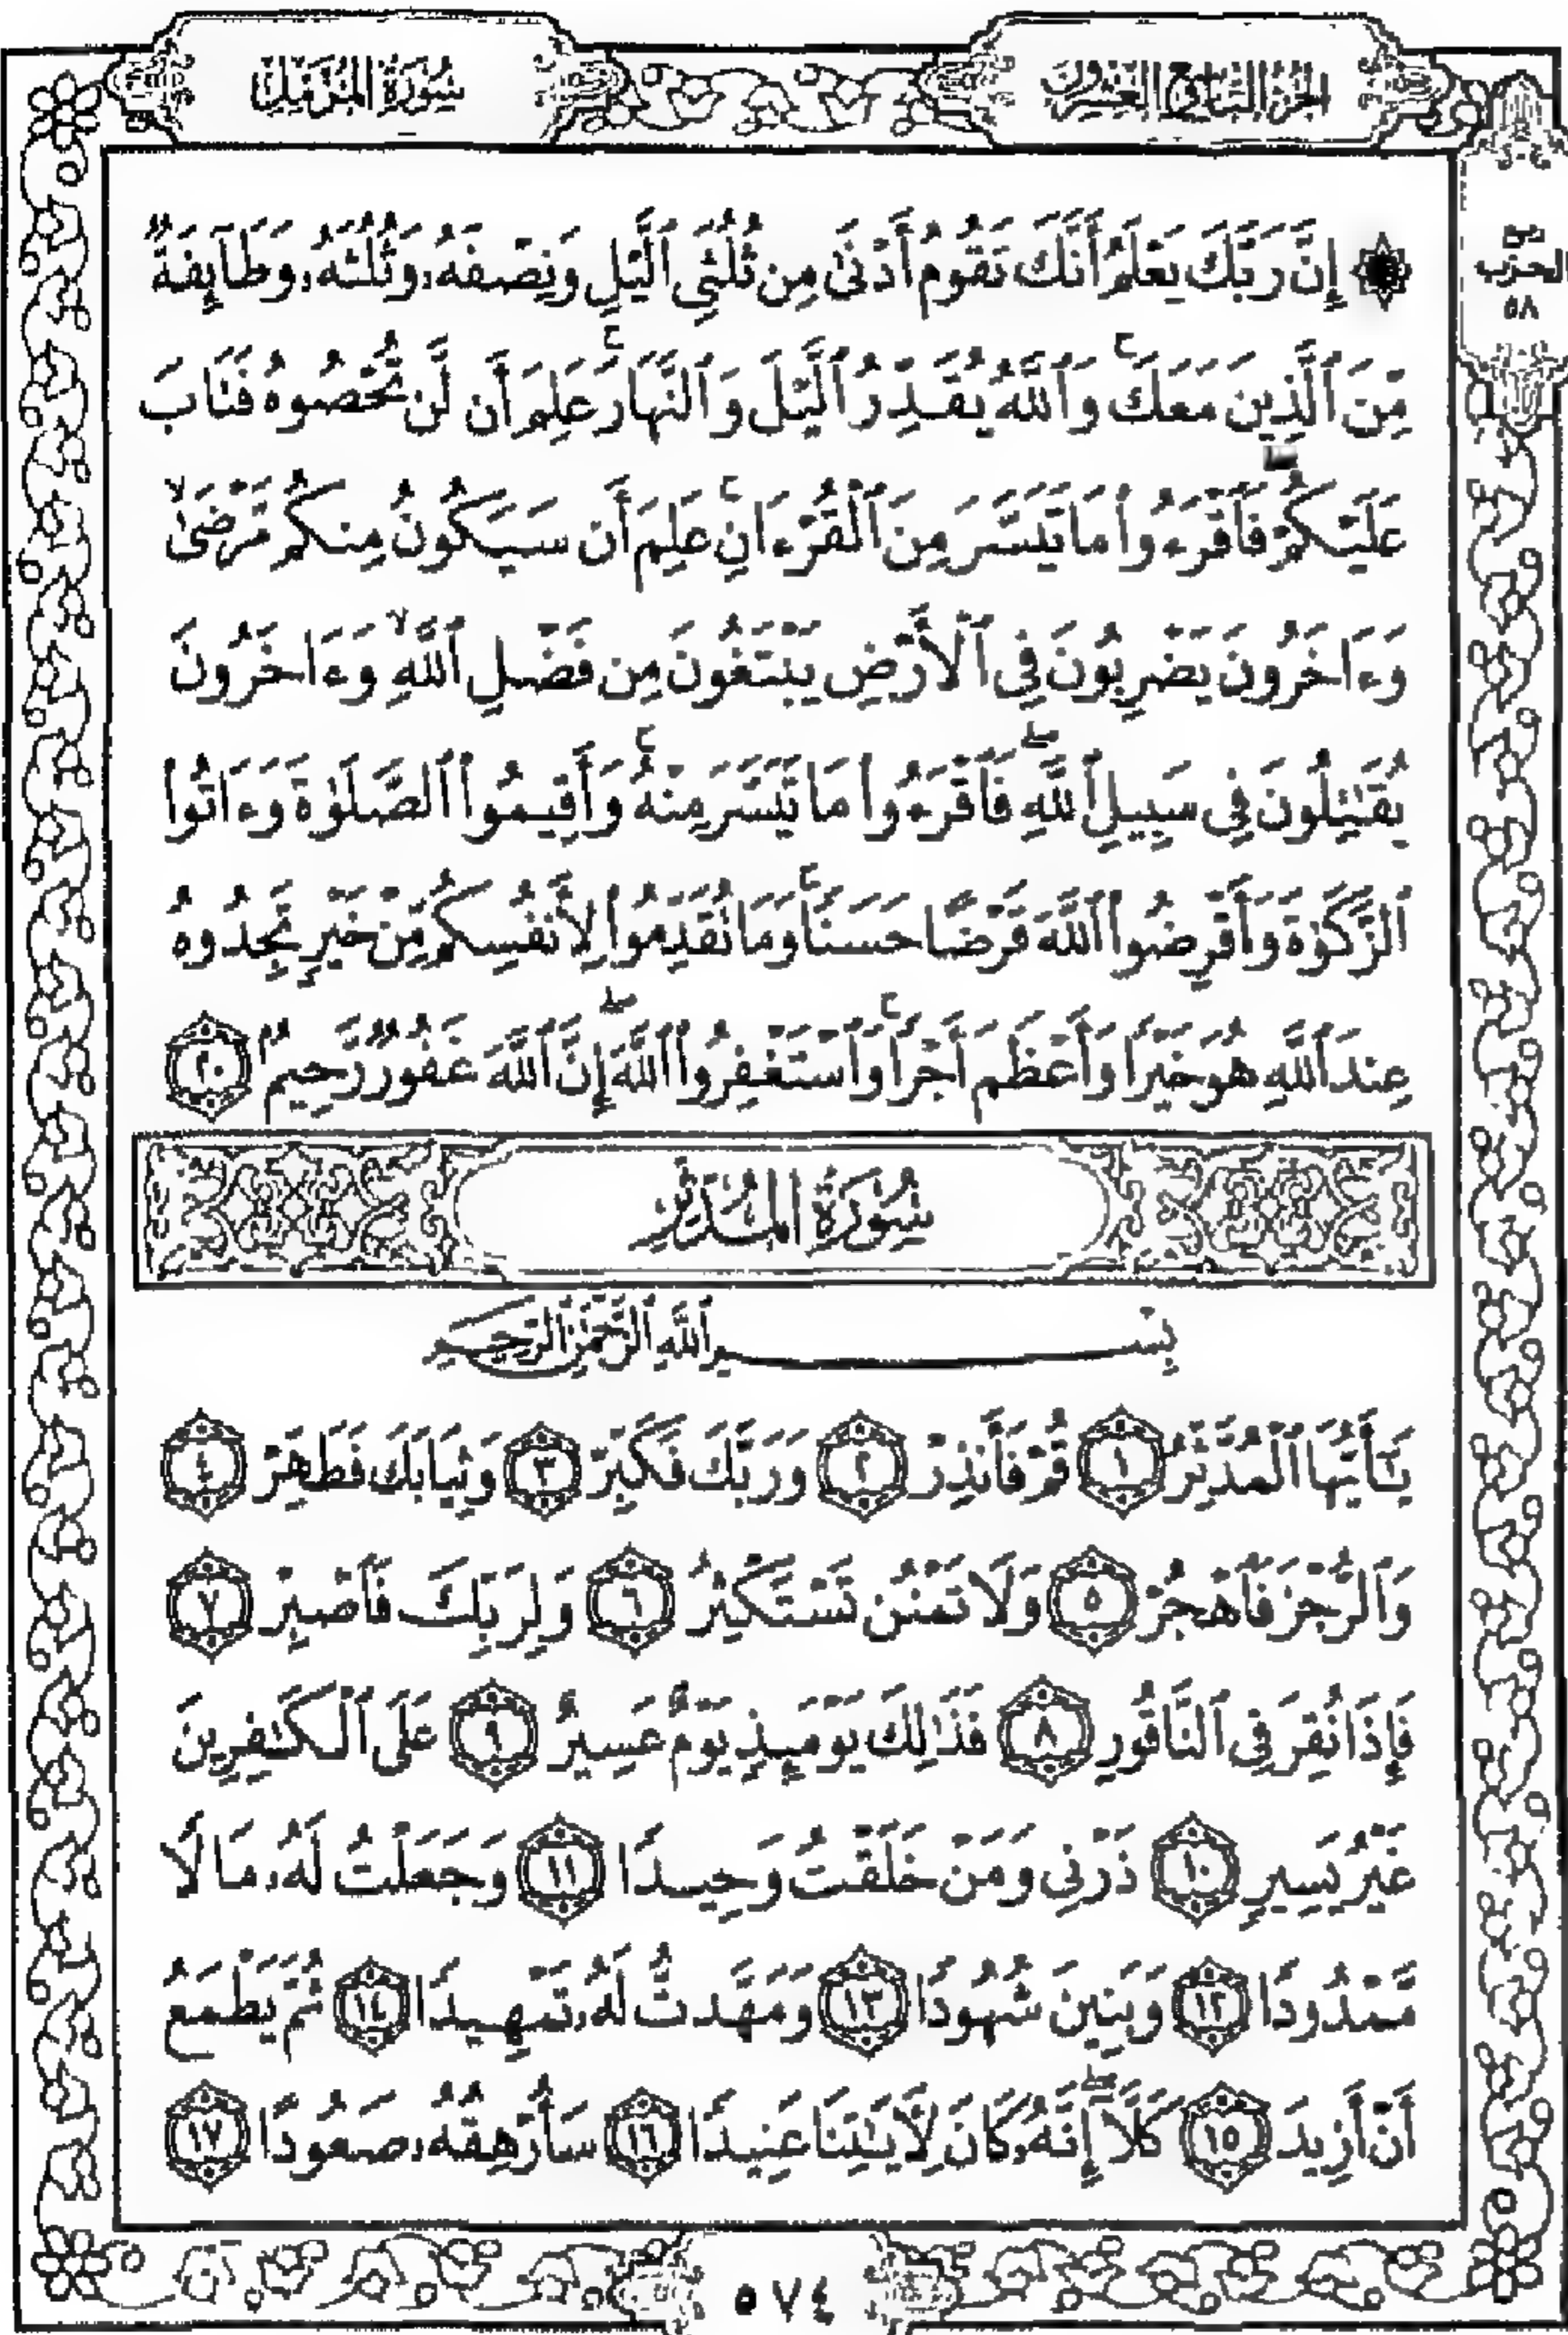 الجزء التاسع والعشرون
سورة المزمل
الحزب
٥٨
إِنَّ رَبَّكَ يَعْلَمُ أَنَّكَ تَقُومُ أَدْنَىٰ مِن ثُلُثَىِ ٱلَّيْلِ وَنِصْفَهُۥ وَثُلُثَهُۥ وَطَآئِفَةٌ
مِّنَ ٱلَّذِينَ مَعَكَ ۚ وَٱللَّهُ يُقَدِّرُ ٱلَّيْلَ وَٱلنَّهَارَ ۚ عَلِمَ أَن لَّن تُحْصُوهُ فَتَابَ
عَلَيْكُمْ ۖ فَٱقْرَءُوا۟ مَا تَيَسَّرَ مِنَ ٱلْقُرْءَانِ ۚ عَلِمَ أَن سَيَكُونُ مِنكُم مَّرْضَىٰ ۙ
وَءَاخَرُونَ يَضْرِبُونَ فِى ٱلْأَرْضِ يَبْتَغُونَ مِن فَضْلِ ٱللَّهِ ۙ وَءَاخَرُونَ
يُقَـٰتِلُونَ فِى سَبِيلِ ٱللَّهِ ۖ فَٱقْرَءُوا۟ مَا تَيَسَّرَ مِنْهُ ۚ وَأَقِيمُوا۟ ٱلصَّلَوٰةَ وَءَاتُوا۟
ٱلزَّكَوٰةَ وَأَقْرِضُوا۟ ٱللَّهَ قَرْضًا حَسَنًا ۚ وَمَا تُقَدِّمُوا۟ لِأَنفُسِكُم مِّنْ خَيْرٍ تَجِدُوهُ
عِندَ ٱللَّهِ هُوَ خَيْرًا وَأَعْظَمَ أَجْرًا ۚ وَٱسْتَغْفِرُوا۟ ٱللَّهَ ۖ إِنَّ ٱللَّهَ غَفُورٌ رَّحِيمٌ ٢٠
سُورَةُ المُدَّثِّرِ
بِسْمِ ٱللَّهِ ٱلرَّحْمَـٰنِ ٱلرَّحِيمِ
يَـٰٓأَيُّهَا ٱلْمُدَّثِّرُ ١ قُمْ فَأَنذِرْ ٢ وَرَبَّكَ فَكَبِّرْ ٣ وَثِيَابَكَ فَطَهِّرْ ٤
وَٱلرُّجْزَ فَٱهْجُرْ ٥ وَلَا تَمْنُن تَسْتَكْثِرُ ٦ وَلِرَبِّكَ فَٱصْبِرْ ٧
فَإِذَا نُقِرَ فِى ٱلنَّاقُورِ ٨ فَذَٰلِكَ يَوْمَئِذٍ يَوْمٌ عَسِيرٌ ٩ عَلَى ٱلْكَـٰفِرِينَ
غَيْرُ يَسِيرٍ ١٠ ذَرْنِى وَمَنْ خَلَقْتُ وَحِيدًا ١١ وَجَعَلْتُ لَهُۥ مَالًا
مَّمْدُودًا ١٢ وَبَنِينَ شُهُودًا ١٣ وَمَهَّدتُّ لَهُۥ تَمْهِيدًا ١٤ ثُمَّ يَطْمَعُ
أَنْ أَزِيدَ ١٥ كَلَّآ ۖ إِنَّهُۥ كَانَ لِـَٔايَـٰتِنَا عَنِيدًا ١٦ سَأُرْهِقُهُۥ صَعُودًا ١٧
٥٧٤